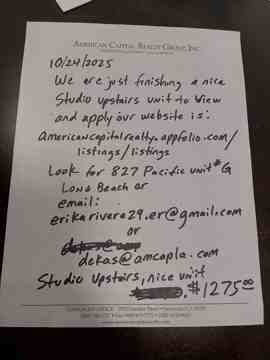 AMERICAN CAPITAL REALTY GROUP, INC.
10/24/2025
We are just finishing a nice
Studio upstairs unit to view
and apply our website is:
americancapitalrealty.appfolio.com/
listings/listings
Look for 827 Pacific unit #G
Long Beach or
email:
erikarivera29.er@gmail.com
or
dekas@amcapla.com
Studio upstairs, nice unit
$1275.00